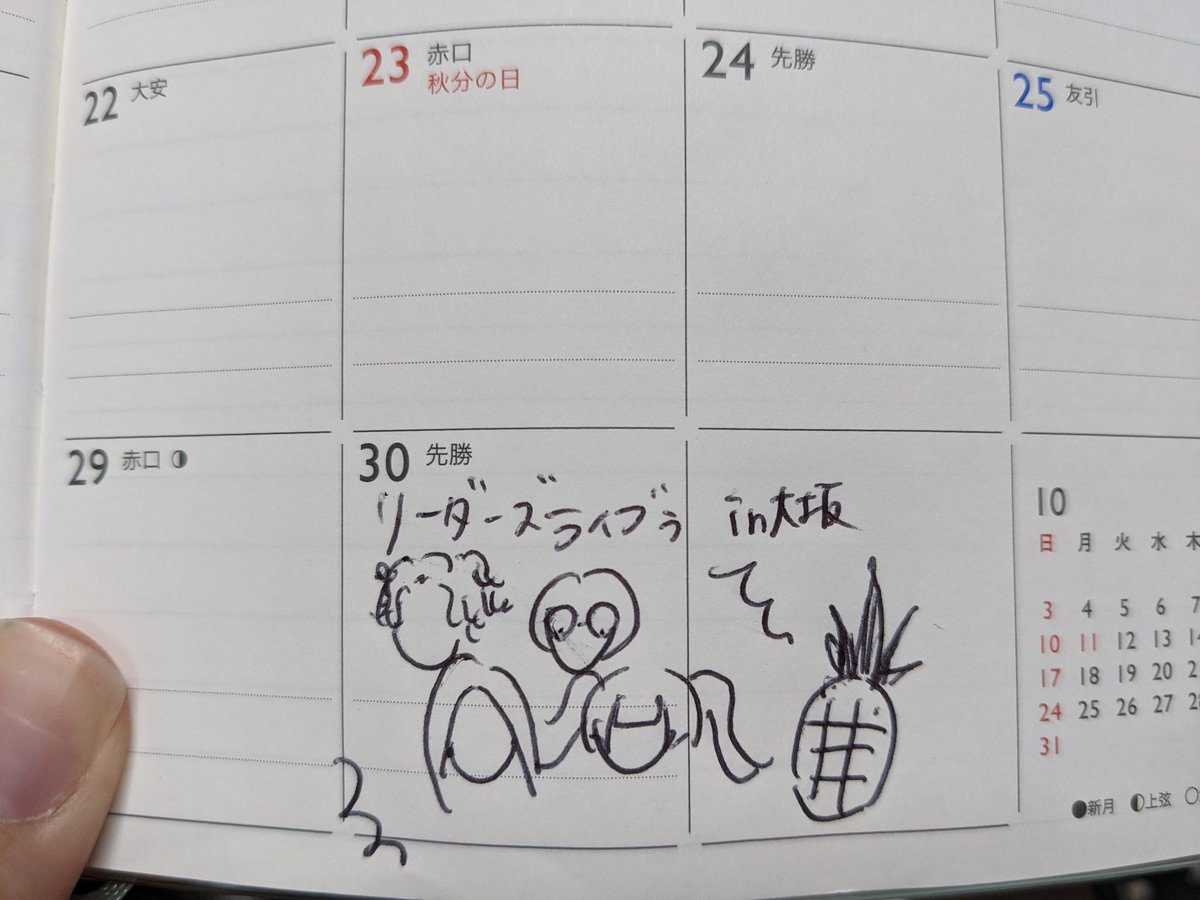 22 大安
23 赤口
秋分の日
24 先勝
25 友引
29 赤口
30 先勝
リーダーズライブぅ in大坂
10
日 月 火 水 木
3 4 5 6 7
10 11 12 13 14
17 18 19 20 2
24 25 26 27 28
31
新月 上弦